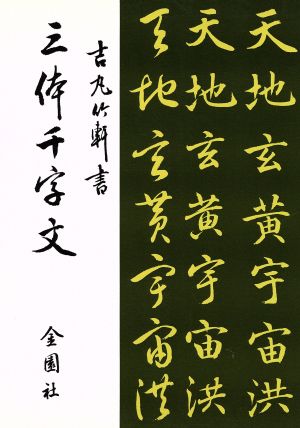 天地玄黄宇宙洪
天地玄黄宇宙洪
天地玄黄宇宙洪
吉丸竹軒書
三体千字文
金園社